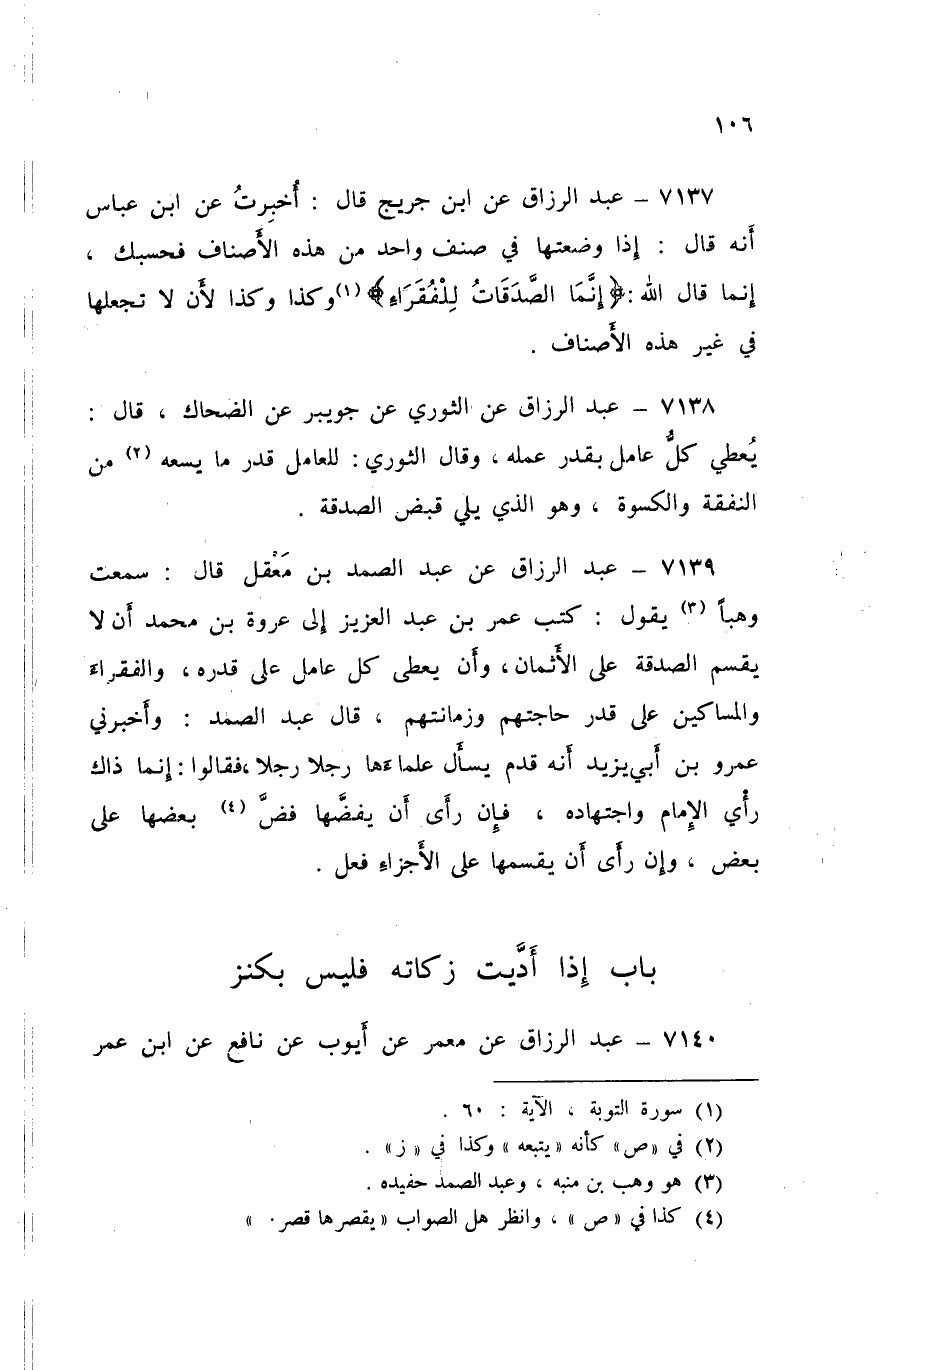 ١٠٦
٧١٣٧ – عبد الرزاق عن ابن جريج قال : أُخبِرتُ عن ابن عباس
أنه قال : إذا وضعتها في صنف واحد من هذه الأصناف فحسبك ،
إنما قال الله : ﴿إِنَّمَا الصَّدَقَاتُ لِلْفُقَرَاءِ﴾ (١) وكذا وكذا لأن لا تجعلها
في غير هذه الأصناف .
٧١٣٨ – عبد الرزاق عن الثوري عن جويبر عن الضحاك ، قال :
يُعطي كلُّ عامل بقدر عمله ، وقال الثوري : للعامل قدر ما يسعه (٢) من
النفقة والكسوة ، وهو الذي يلي قبض الصدقة .
٧١٣٩ – عبد الرزاق عن عبد الصمد بن مَعْقل قال : سمعت
وهباً (٣) يقول : كتب عمر بن عبد العزيز إلى عروة بن محمد أن لا
يقسم الصدقة على الأثمان ، وأن يعطى كل عامل على قدره ، والفقراء
والمساكين على قدر حاجتهم وزمانتهم ، قال عبد الصمد : وأخبرني
عمرو بن أبي يزيد أنه قدم يسأل علماءها رجلا رجلا ، فقالوا : إنما ذاك
رأي الإمام واجتهاده ، فإن رأى أن يفضَّها فضَّ (٤) بعضها على
بعض ، وإن رأى أن يقسمها على الأجزاء فعل .
باب إذا أدَّيت زكاته فليس بكنز
٧١٤٠ – عبد الرزاق عن معمر عن أيوب عن نافع عن ابن عمر
(١) سورة التوبة ، الآية : ٦٠ .
(٢) في «ص» كأنه «يتبعه» وكذا في «ز» .
(٣) هو وهب بن منبه ، وعبد الصمد حفيده .
(٤) كذا في «ص» ، وانظر هل الصواب «يقصرها قصر٠»